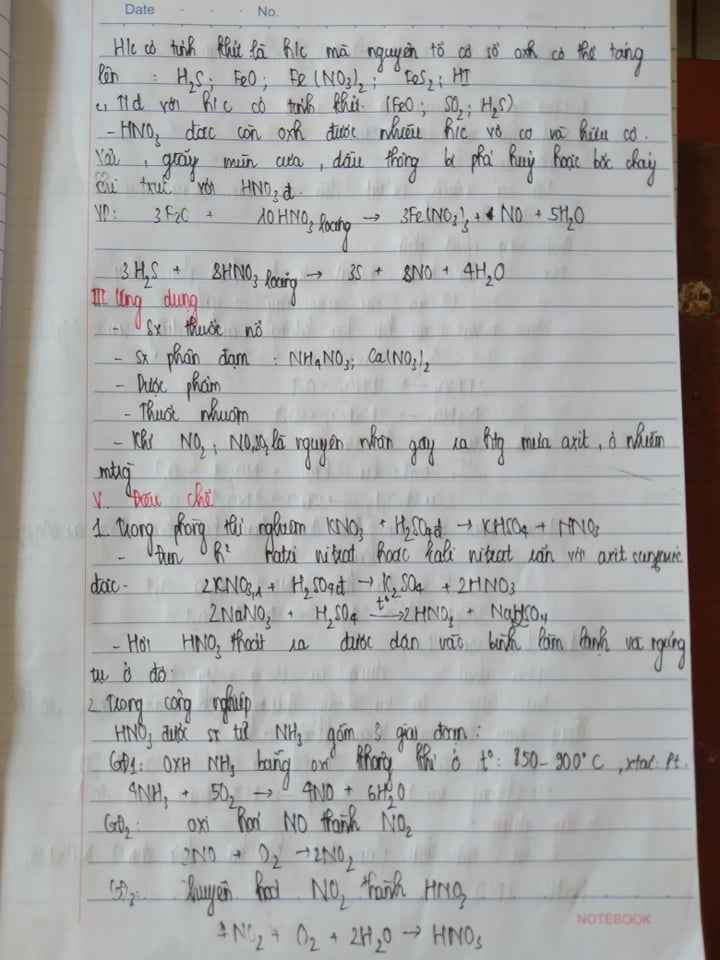 Date No.
H/c có tính khử là h/c mà nguyên tố có số oxh có thể tăng
lên : H₂S ; FeO ; Fe(NO₃)₂ ; FeS₂ ; HI
c, T/d với h/c có tính khử. (FeO ; SO₂ ; H₂S)
- HNO₃ đặc còn oxh được nhiều h/c vô cơ và hữu cơ.
Vải , giấy mùn cưa , dầu thông bị phá huỷ hoặc bốc cháy
khi với HNO₃ đ.
VD: 3FeO + 10HNO₃ loãng → 3Fe(NO₃)₃ + NO + 5H₂O
3H₂S + 8HNO₃ loãng → 3S + 8NO + 4H₂O
III Ứng dụng
- Sx thuốc nổ
- Sx phân đạm : NH₄NO₃; Ca(NO₃)₂
- Dược phẩm
- Thuốc nhuộm
- Khí NO₂ ; NO, SO₂ là nguyên nhân gây ra htg mưa axit , ô nhiễm
mtrg
V. Điều chế
1. Trong phòng thí nghiệm KNO₃ + H₂SO₄đ → KHSO₄ + HNO₃
- natri nitrat hoặc kali nitrat rắn với axit sunfuric
đặc. 2KNO₃,r + H₂SO₄đ → K₂SO₄ + 2HNO₃
2NaNO₃ + H₂SO₄ t°→ 2HNO₃ + NaHSO₄
- Hơi HNO₃ thoát ra được dẫn vào bình làm lạnh và ngưng
tụ ở đó.
2. Trong công nghiệp
HNO₃ được sx từ NH₃ gồm 3 giai đoạn :
GĐ1: OXH NH₃ bằng oxi không khí ở t°: 850-900°C , xtác Pt.
4NH₃ + 5O₂ → 4NO + 6H₂O
GĐ₂: oxi hoá NO thành NO₂
2NO + O₂ → 2NO₂
GĐ₂: chuyển hoá NO₂ thành HNO₃
4NO₂ + O₂ + 2H₂O → HNO₃
NOTEBOOK